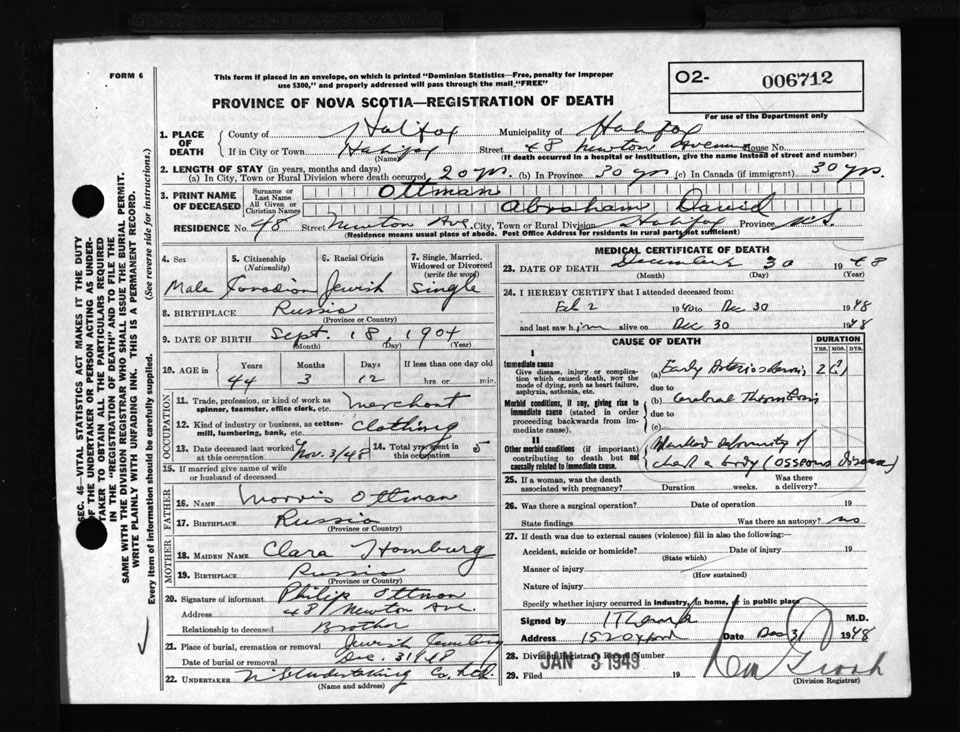 FORM 6
This form if placed in an envelope, on which is printed "Dominion Statistics—Free, penalty for improper
use $300," and properly addressed will pass through the mail "FREE"
O2- 006712
For use of the Department only
PROVINCE OF NOVA SCOTIA—REGISTRATION OF DEATH
1. PLACE OF DEATH
County of Halifax Municipality of Halifax
If in City or Town Halifax Street 48 Newton Avenue House No.
(Name) (If death occurred in a hospital or institution, give the name instead of street and number)
2. LENGTH OF STAY (in years, months and days)
(a) In City, Town or Rural Division where death occurred 20 yrs. (b) In Province 30 yrs. (c) In Canada (if immigrant) 30 yrs.
3. PRINT NAME OF DECEASED
Surname or Last Name Ottman
All Given or Christian Names Abraham David
RESIDENCE No. 48 Street Newton Ave. City, Town or Rural Division Halifax Province N.S.
(Residence means usual place of abode. Post Office Address for residents in rural parts not sufficient)
4. Sex
Male
5. Citizenship (Nationality)
Canadian
6. Racial Origin
Jewish
7. Single, Married, Widowed or Divorced (write the word)
Single
8. BIRTHPLACE Russia
(Province or Country)
9. DATE OF BIRTH Sept. 18, 1904
(Month) (Day) (Year)
10. AGE in Years Months Days If less than one day old
44 3 12 hrs or min.
OCCUPATION
11. Trade, profession, or kind of work as spinner, teamster, office clerk, etc. Merchant
12. Kind of industry or business, as cotton-mill, lumbering, bank, etc. Clothing
13. Date deceased last worked at this occupation Nov. 3/48 14. Total years spent in this occupation 5
15. If married give name of wife or husband of deceased
FATHER
16. NAME Morris Ottman
17. BIRTHPLACE Russia
(Province or Country)
MOTHER
18. MAIDEN NAME Clara Homburg
19. BIRTHPLACE Russia
(Province or Country)
20. Signature of informant Philip Ottman
Address 48 Newton Ave.
Relationship to deceased Brother
21. Place of burial, cremation or removal Jewish
Date of burial or removal Dec. 31 1948
22. UNDERTAKER N S Undertaking Co. Ltd.
(Name and address)
MEDICAL CERTIFICATE OF DEATH
23. DATE OF DEATH December 30 1948
(Month) (Day) (Year)
24. I HEREBY CERTIFY that I attended deceased from:
Feb 2 1940 to Dec 30 1948
and last saw him alive on Dec 30 1948
CAUSE OF DEATH
DURATION
YRS. MOS. DYS.
I
Immediate cause
Give disease, injury or complication which caused death, NOT the mode of dying, such as heart failure, asphyxia, asthenia, etc.
(a) Early Arteriosclerosis 2
due to
Morbid conditions, if any, giving rise to immediate cause (stated in order proceeding backwards from immediate cause).
(b) Cerebral Thrombosis
due to
(c)
II
Other morbid conditions (if important) contributing to death but not causally related to immediate cause.
Marked deformity of
chest & body (Osseous disease)
25. If a woman, was the death associated with pregnancy? Duration weeks. Was there a delivery?
26. Was there a surgical operation? Date of operation 19
State findings Was there an autopsy? no
27. If death was due to external causes (violence) fill in also the following:—
Accident, suicide or homicide? Date of injury 19
(State which)
Manner of injury
(How sustained)
Nature of injury
Specify whether injury occurred in industry, in home, or in public place
Signed by M.D.
Address 152 Oxford Date Dec 31 1948
28. Division Registrar's Record Number
29. Filed JAN 3 1949 19
(Division Registrar)
SEC. 46—VITAL STATISTICS ACT MAKES IT THE DUTY
OF THE UNDERTAKER OR PERSON ACTING AS UNDER-
TAKER TO OBTAIN ALL THE PARTICULARS REQUIRED
IN THE "REGISTRATION OF DEATH" AND TO FILE THE
SAME WITH THE DIVISION REGISTRAR WHO SHALL ISSUE THE BURIAL PERMIT.
WRITE PLAINLY WITH UNFADING INK. THIS IS A PERMANENT RECORD.
Every item of information should be carefully supplied. (See reverse side for instructions.)